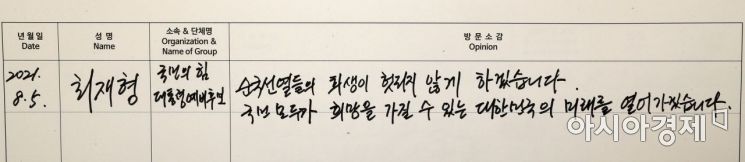 년 월 일
Date
성 명
Name
소속 & 단체명
Organization &
Name of Group
방 문 소 감
Opinion
2021.
8.5.
최재형
국민의 힘
대통령예비후보
순국선열들의 희생이 헛되지 않게 하겠습니다.
국민 모두가 희망을 가질 수 있는 대한민국의 미래를 열어가겠습니다.
아시아경제